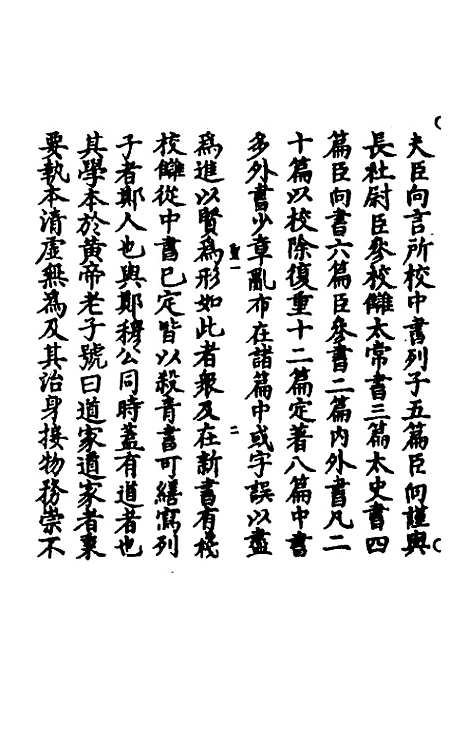 夫臣向言所校中書列子五篇臣向謹與
長社尉臣參校讎太常書三篇太史書四
篇臣向書六篇臣參書二篇內外書凡二
十篇以校除復重十二篇定著八篇中書
多外書少章亂布在諸篇中或字誤以盡
為進以賢為形如此者衆及在新書有棧
校讎從中書已定皆以殺青書可繕寫列
子者鄭人也與鄭穆公同時蓋有道者也
其學本於黃帝老子號曰道家道家者秉
要執本清虛無為及其治身接物務崇不